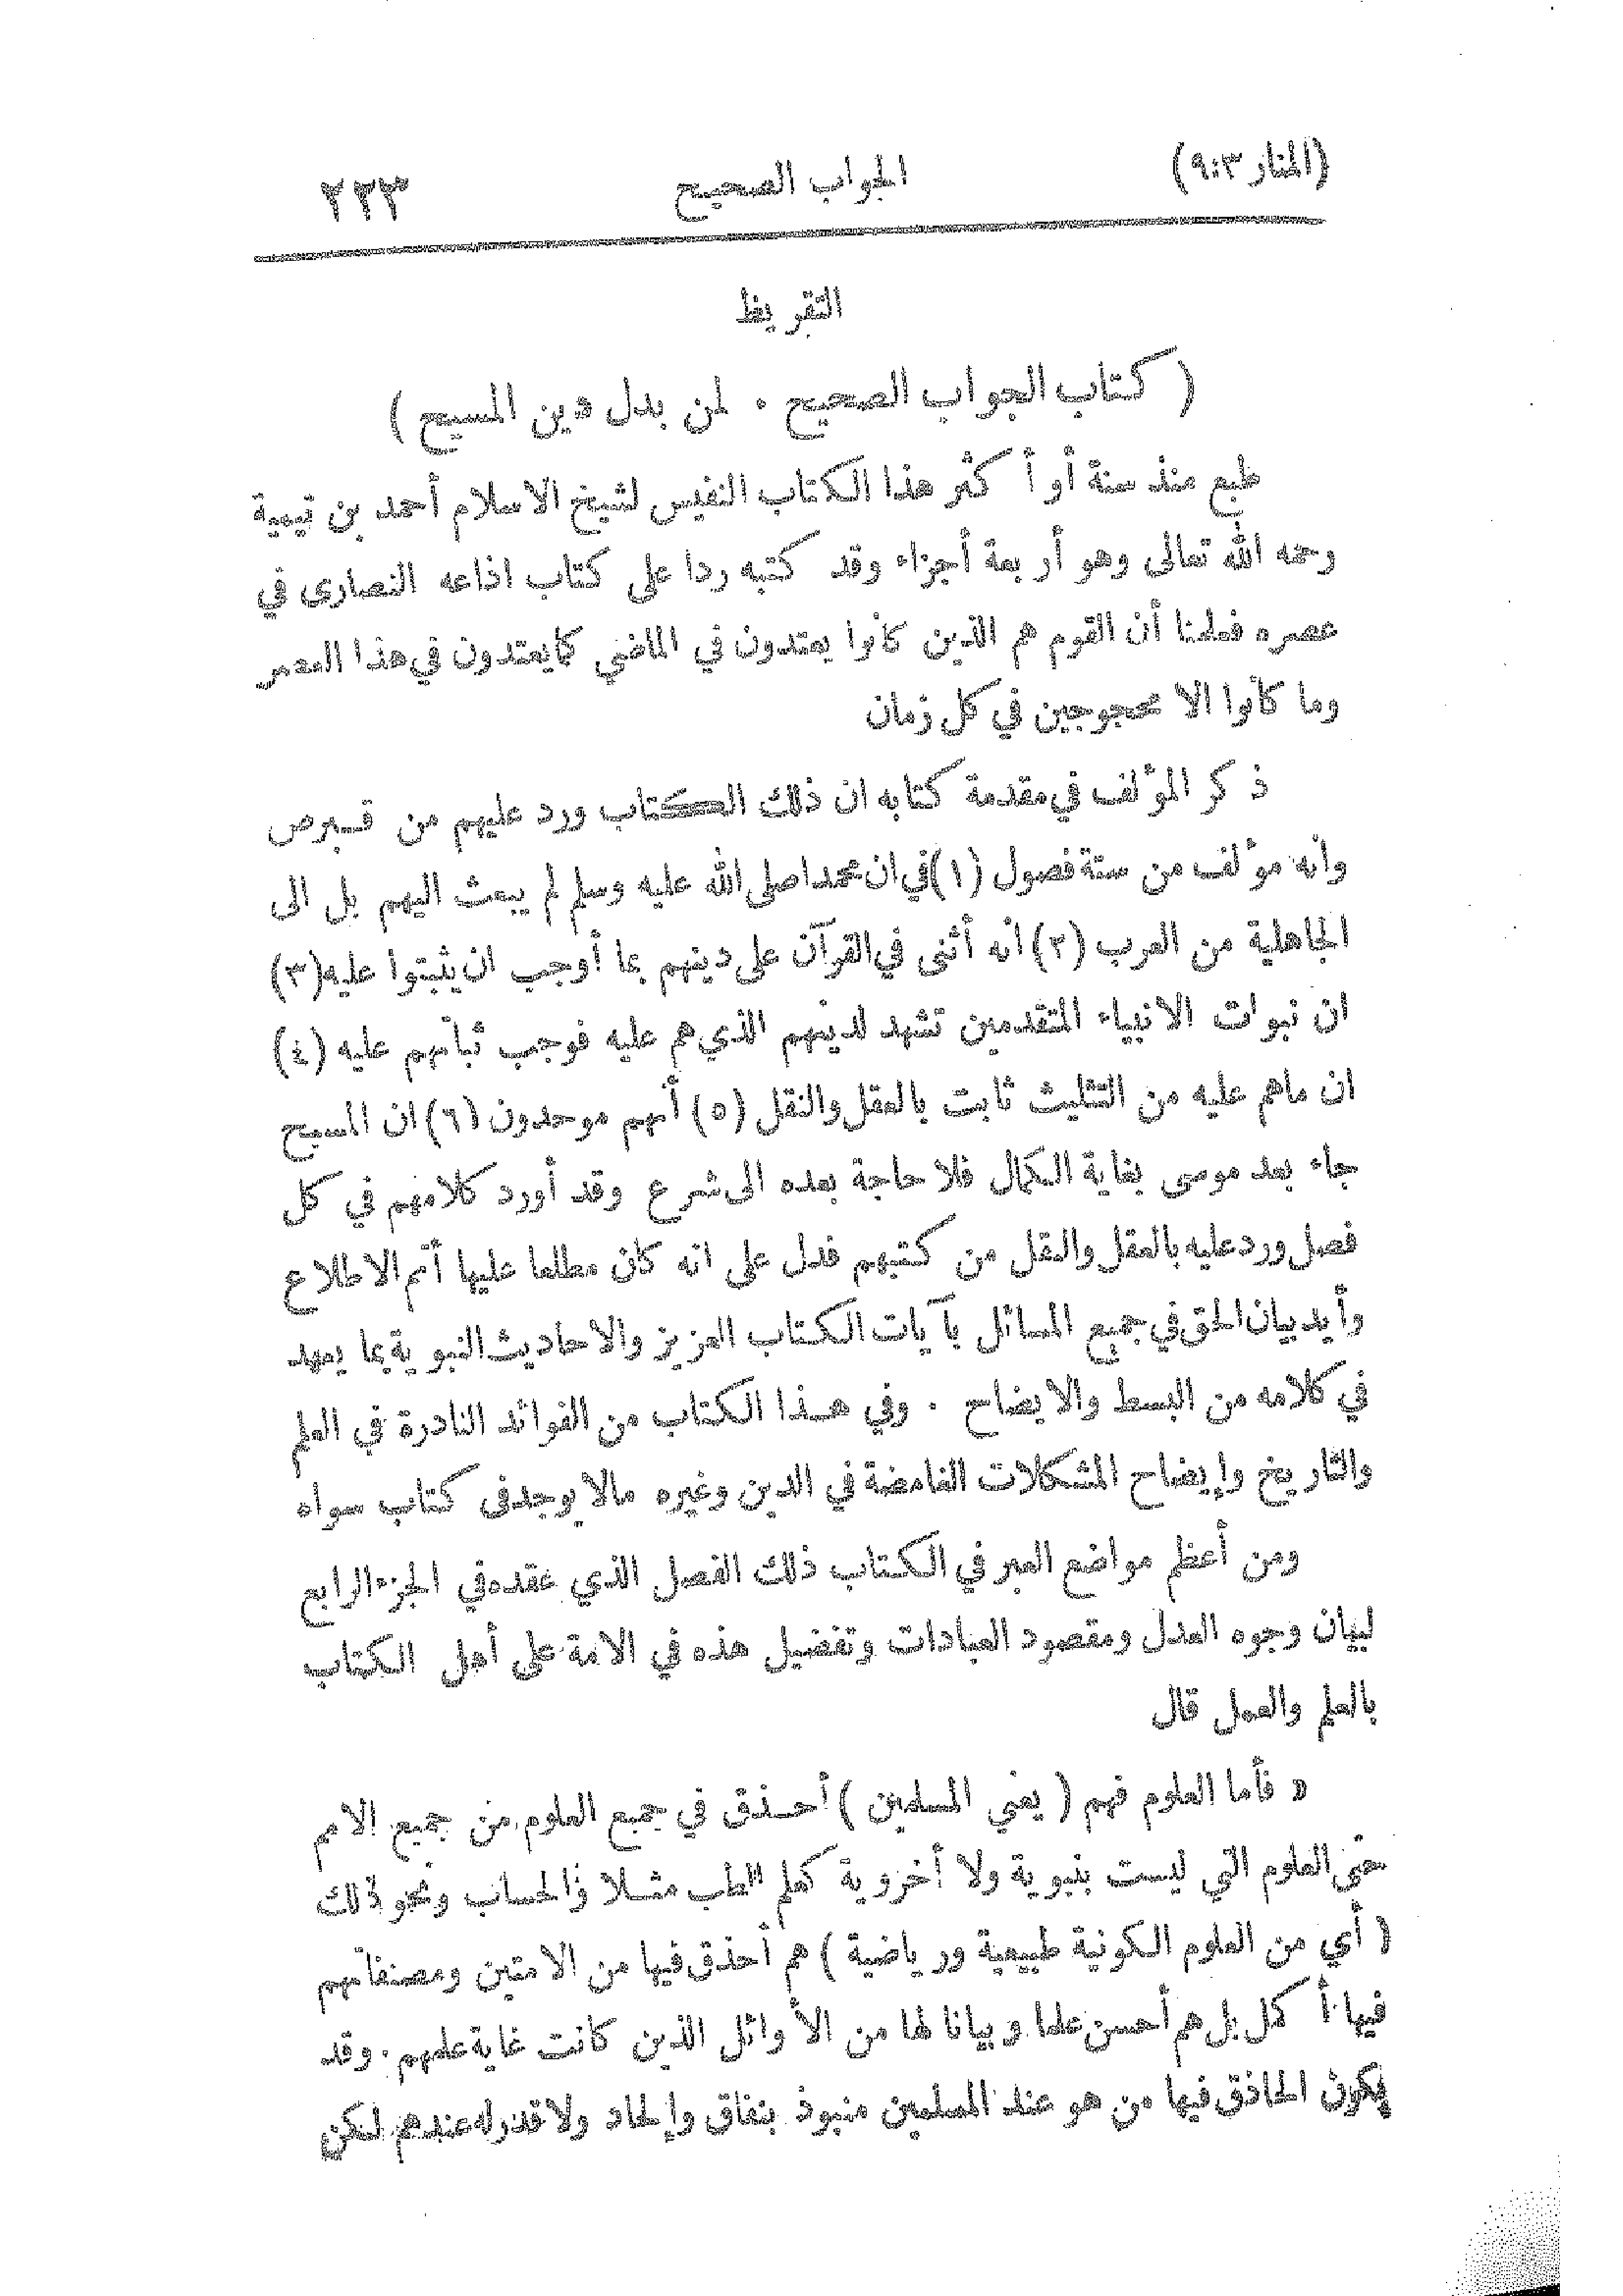 (المنار ٩:٣) الجواب الصحيح ٢٣٣
التقريظ
( كتاب الجواب الصحيح . لمن بدل دين المسيح )
طبع منذ سنة أو أكثر هذا الكتاب النفيس لشيخ الاسلام أحمد بن تيمية
رحمه الله تعالى وهو أربعة أجزاء وقد كتبه ردا على كتاب اذاعه النصارى في
عصره فعلمنا أن القوم هم الذين كانوا يعتدون في الماضي كما يعتدون في هذا العصر
وما كانوا الا محجوجين في كل زمان
ذكر المؤلف في مقدمة كتابه ان ذلك الكتاب ورد عليهم من قبرص
وأنه مؤلف من ستة فصول (١) في ان محمدا صلى الله عليه وسلم لم يبعث اليهم بل الى
الجاهلية من العرب (٢) أنه أثنى في القرآن على دينهم بما أوجب ان يثبتوا عليه (٣)
ان نبوات الانبياء المتقدمين تشهد لدينهم الذي هم عليه فوجب ثباتهم عليه (٤)
ان ماهم عليه من التثليث ثابت بالعقل والنقل (٥) أنهم موحدون (٦) ان المسيح
جاء بعد موسى بغاية الكمال فلا حاجة بعده الى شرع وقد أورد كلامهم في كل
فصل ورد عليه بالعقل والنقل من كتبهم فدل على انه كان مطلعا عليها أتم الاطلاع
وأيد بيان الحق في جميع المسائل بآيات الكتاب العزيز والاحاديث النبوية بما يعهد
في كلامه من البسط والايضاح . وفي هذا الكتاب من الفوائد النادرة في العلم
والتاريخ وإيضاح المشكلات الغامضة في الدين وغيره مالا يوجد فى كتاب سواه
ومن أعظم مواضع العبر في الكتاب ذلك الفصل الذي عقده في الجزء الرابع
لبيان وجوه العدل ومقصود العبادات وتفضيل هذه في الامة على أهل الكتاب
بالعلم والعمل قال
« فأما العلوم فهم ( يعني المسلمين ) أحذق في جميع العلوم من جميع الامم
حتى العلوم التي ليست بنبوية ولا أخروية كعلم الطب مثلا والحساب ونحو ذلك
( أي من العلوم الكونية طبيعية ورياضية ) هم أحذق فيها من الامتين ومصنفاتهم
فيها أكمل بل هم أحسن علما وبيانا لها من الأوائل الذين كانت غاية علمهم . وقد
يكون الحاذق فيها من هو عند المسلمين منبوذ بنفاق وإلحاد ولا قدر له عندهم لكن